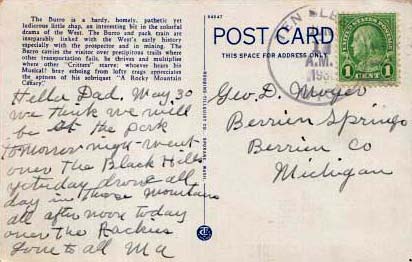 The Burro is a hardy, homely, pathetic yet
ludicrous little shap, an interesting bit in the colorful
drama of the West. The Burro and pack train are
inseparably linked with the West's early history
especially with the prospector and in mining. The
Burro carries the ore over precipitous trails where
other transportation fails, he thrives and multiplies
where other "Critters" starve; whoever hears his
Musical! bray echoing from lofty crags appreciates
the aptness of his sobriquet "A Rocky Mountain
Canary."
Hello Dad. May 30
we think we will
be at the park
tomorrow night went
over the Black Hills
yesterday drove all
day in those mountains
all afternoon today
over the Rockies
Love to all Ma
POST CARD
THIS SPACE FOR ADDRESS ONLY
A.M.
193
1 CENT 1
Geo. D. Moyer
Berrien Springs
Berrien Co
Michigan